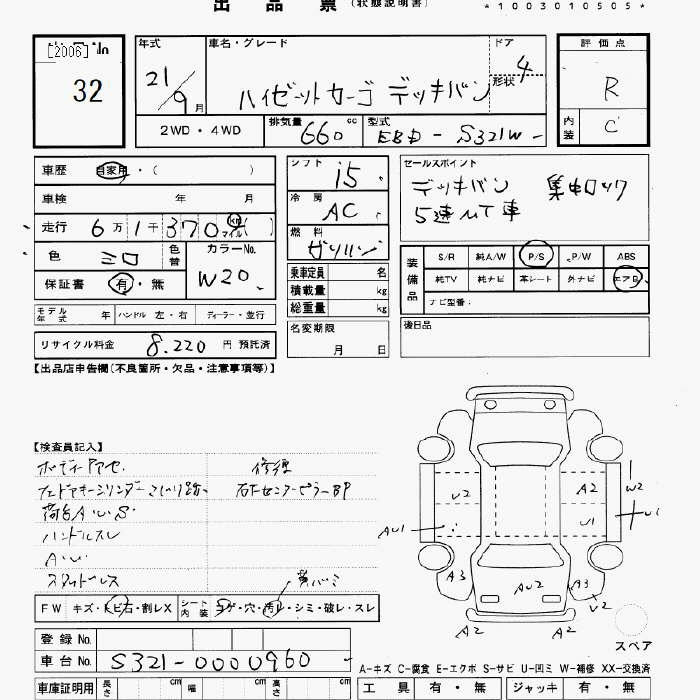 出品票(状態説明書)
*1003010505*
[2006]
32
年式
21/9月
車名・グレード
ハイゼットカーゴ デッキバン
ドア
形状
4
評価点
R
内装
C
2WD・4WD
排気量
660cc
型式
EBD-S321W
車歴
自家用・( )
車検 年 月
走行 6万1千370 km マイル ( )
色
シロ
色替
カラーNo.
W20
保証書 有・無
モデル年式 年 ハンドル 左・右 ディーラー・並行
リサイクル料金 8,220円 預託済
シフト
i5
冷房
AC
燃料
ガソリン
乗車定員 名
積載量 kg
総重量 kg
名変期限
月 日
セールスポイント
デッキバン 集中ロック
5速MT車
装備品
S/R 純A/W P/S P/W ABS
純TV 純ナビ 革シート 外ナビ エアB
ナビ型番:
後日品
【出品店申告欄(不良箇所・欠品・注意事項等)】
【検査員記入】
修復
荷台AUS
ハンドルスレ
AU
FW キズ・トビ石・割レX
シート内装 コゲ・穴・汚レ・シミ・破レ・スレ
登録No.
車台No. S321-0000960
車庫証明用 長さ cm 幅 cm cm
U2
A2
W2
U1
U1
AU1
A3
AU2
A3
U2
A2
A2
スペア
A-キズ C-腐食 E-エクボ S-サビ U-凹ミ W-補修 XX-交換済
工具 有・無 ジャッキ 有・無